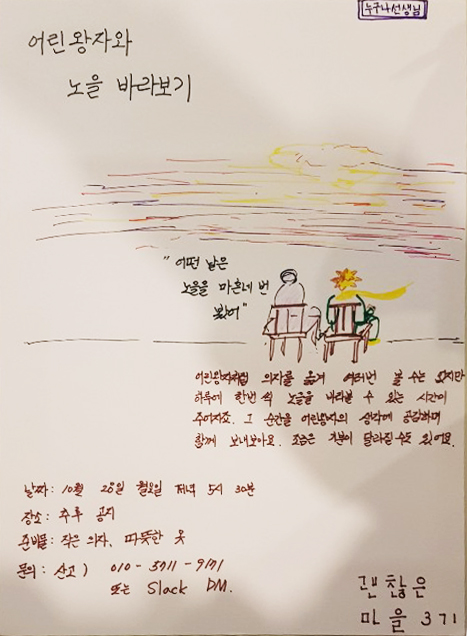 누구나선생님
어린왕자와
노을 바라보기
"어떤 날은
노을을 마흔네 번
봤어"
어린왕자처럼 의자를 옮겨 여러번 볼 수는 없지만
하루에 한번 씩 노을을 바라볼 수 있는 시간이
주어져요. 그 순간을 어린왕자의 생각에 공감하며
함께 보내보아요. 조금은 기분이 달라질 수도 있어요.
날짜: 10월 28일 월요일 저녁 5시 30분
장소: 추후 공지
준비물: 작은 의자, 따뜻한 옷
문의: 산고) 010-5711-9171
또는 Slack DM.
괜찮은
마을 3기